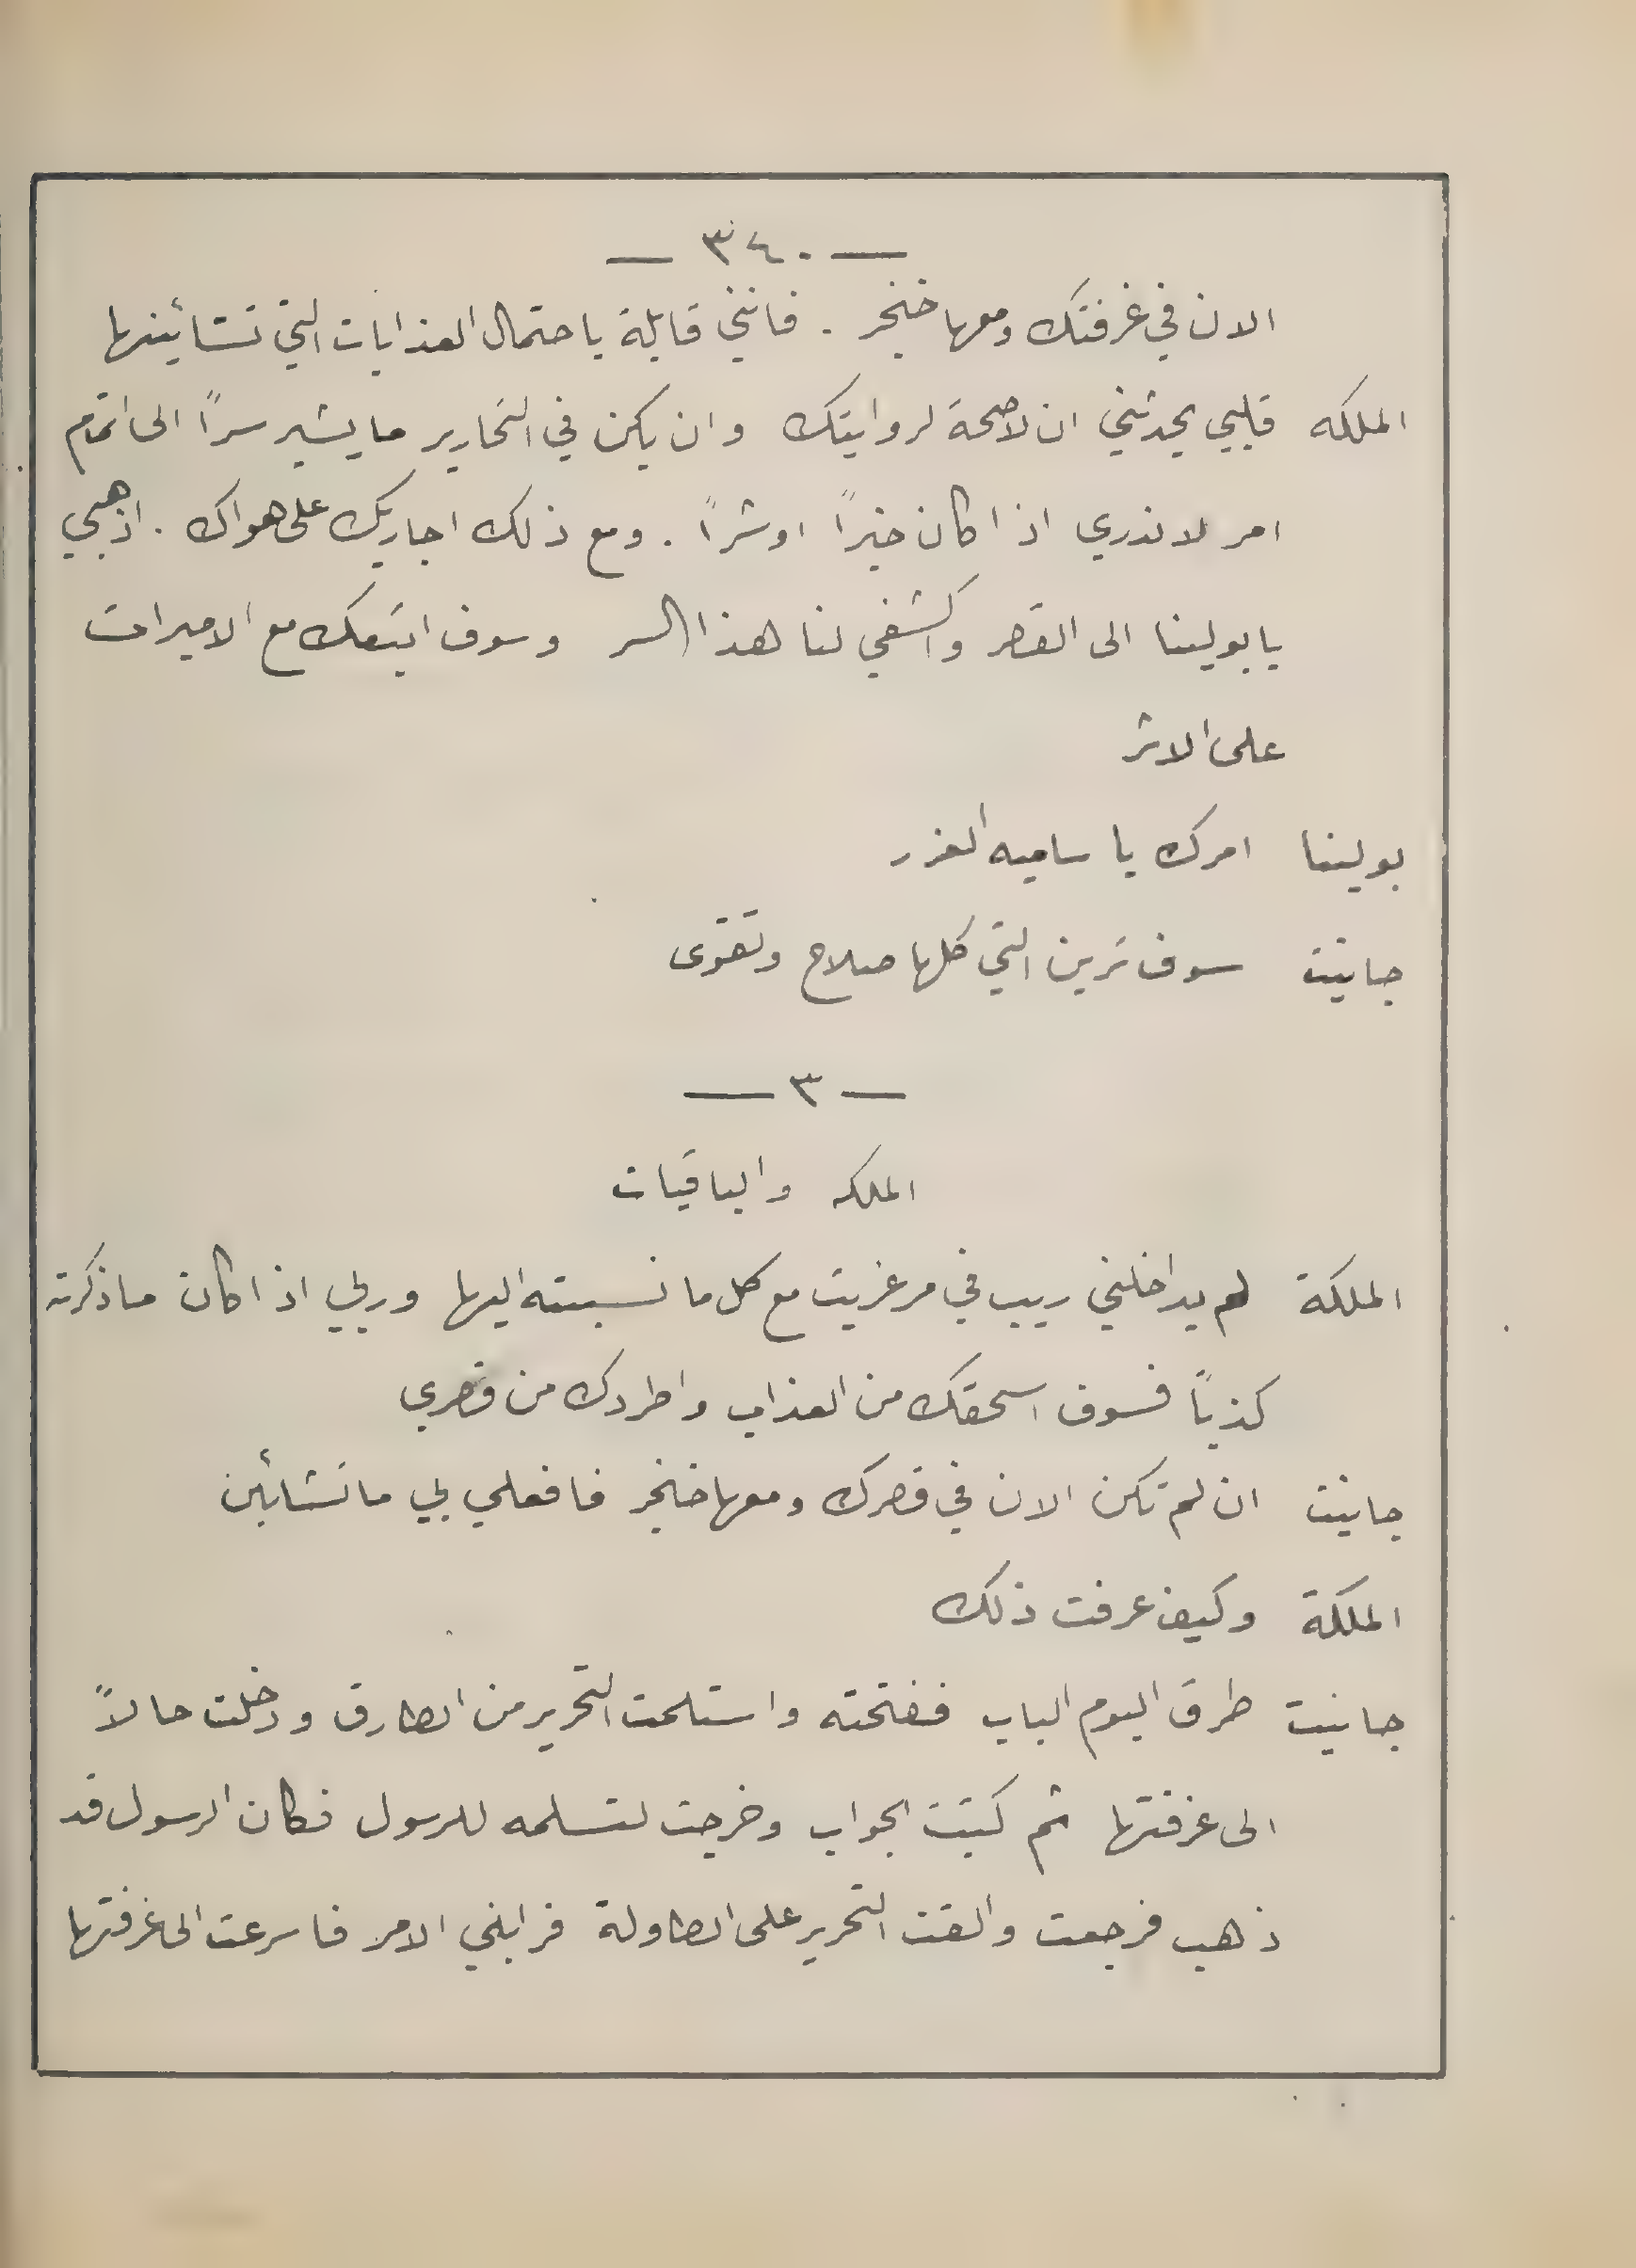 — ٣٤٠ —
الان في غرفتك ومعها خنجر . فانني قابلة باحتمال العذابات التي تشائينها
الملكه قلبي يحدثني ان لاصحة لروايتك وان يكن في التحارير ما يشير سراً الى اتمام
امر لا ندري اذا كان خيراً او شراً . ومع ذلك اجاريك على هواك . اذهبي
يا بولينا الى القصر واكشفي لنا هذا السر وسوف اتبعك مع الاميرات
على الاثر
بولينا امرك يا ساميه القدر
جانيت سوف ترين التي كلها صلاح وتقوى
— ٣ —
الملكه والباقيات
الملكة لم يداخلني ريب في مرغريت مع كل ما نسبته اليها وربي اذا كان ما ذكرته
كذباً فسوف اسحقك من العذاب واطردك من قصري
جانيت ان لم تكن الان في قصرك ومعها خنجر فافعلي بي ما تشائين
الملكة وكيف عرفت ذلك
جانيت طرق اليوم الباب ففتحته واستلمت التحرير من الطارق ودخلت حالاً
الى غرفتها ثم كتبت الجواب وخرجت لتسلمه للرسول فكان الرسول قد
ذهب فرجعت والقت التحرير على الطاولة فرابني الامر فاسرعت الى غرفتها